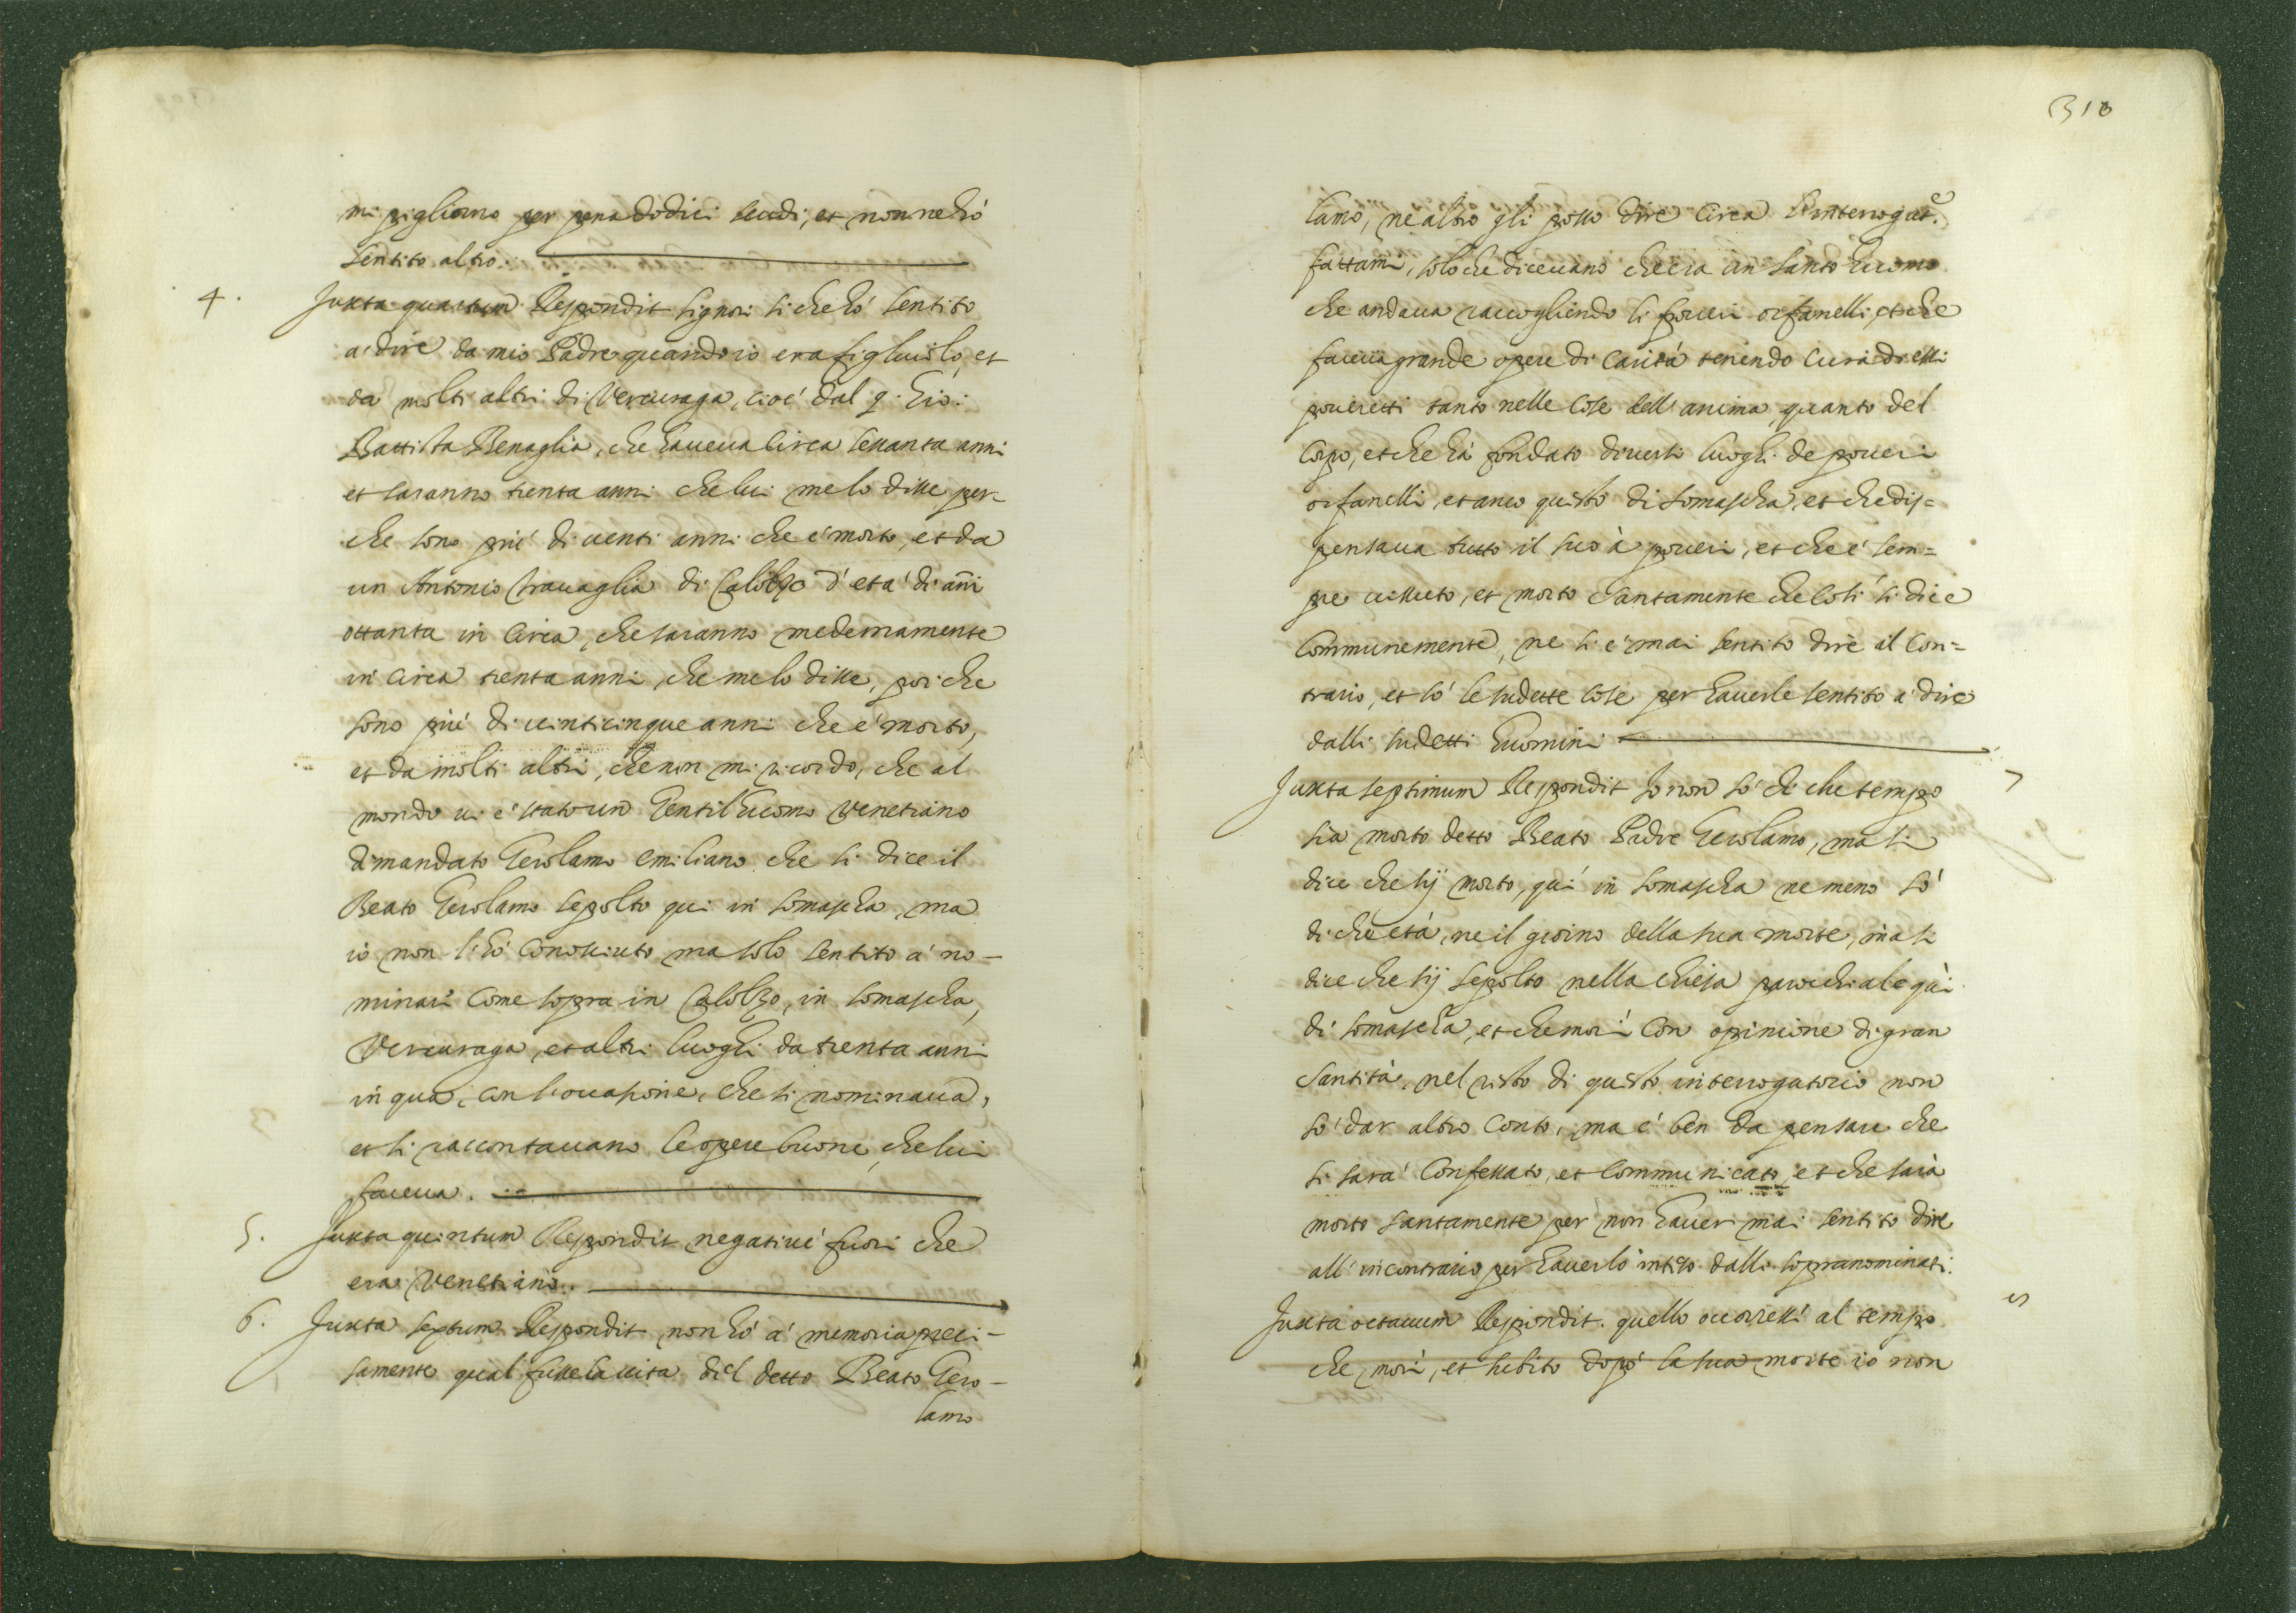 mi pigliorno per pena dodici scudi, et non ne hó
sentito altro.
4. Juxta quartum Respondit signori si che hó sentito
a' dire da mio Padre quando io era figliuolo, et
da molti altri di Vercuraga, cioé dal q. Gio:
Battista Benaglia, che haueua circa sessanta anni
et saranno trenta anni che lui me lo disse per-
che sono piú di uenti anni che é morto, et da
un Antonio Trauaglia di Calolzo d'etá di anni
ottanta in circa, che saranno medemamente
in circa trenta anni, che me lo disse, poi che
sono piú di uinticinque anni che é morto,
et da molti altri, che non mi ricordo, che al
mondo ui é stato un Gentil'huomo Venetiano
dimandato Gerolamo emiliano che si dice il
Beato Gerolamo sepolto qui in Somascha, ma
io non l'hó conosciuto ma solo sentito a' no-
minari come sopra in Calolzo, in Somascha,
Vercuraga, et altri luoghi da trenta anni
in qua, con l'occasione, che si nominaua,
et si raccontauano le opere buone, che lui
faceua.
5. Juxta quintum Respondit negatiué fuori che
era Venetiano.
6. Juxta sextum Respondit non hó a' memoria preci-
samente qual fusse la uita del detto Beato Gero-
lamo
310
lamo, ne altro gli posso dire circa l'interrogat.º
fattami, solo che diceuano che era un santo huomo
che andaua raccogliendo li poueri orfanelli, et che
faceua grande opere di caritá tenendo cura di essi
poueretti tanto nelle cose dell'anima, quanto del
corpo, et che há fondato diuersi luoghi de poueri
orfanelli, et anco questo di Somascha, et che dis-
pensaua tutto il suo à poueri, et che é sem-
pre uissuto, et morto santamente che cosí si dice
communemente, ne si é mai sentito dire il con-
trario, et só le sudette cose per hauerle sentito a' dire
dalli sudetti huomini
Juxta septimum Respondit Io non só di che tempo 7
sia morto detto Beato Padre Gerolamo, ma si
dice che sij morto, quí in Somascha ne meno só
di che etá, ne il giorno della sua morte, ma si
dice che sij sepolto nella chiesa parochiale quí
di Somascha, et che morí con opinione di gran
santitá, nel resto di questo interrogatorio non
só dar altro conto, ma é ben da pensare che
si sará confessato, et communicato, et che sará
morto santamente per non hauer mai sentito dire
all'incontrario per hauerlo inteso dalli sopranominati.
Juxta octauum Respondit. quello occorressi al tempo
che morí, et subito dopó la sua morte io non